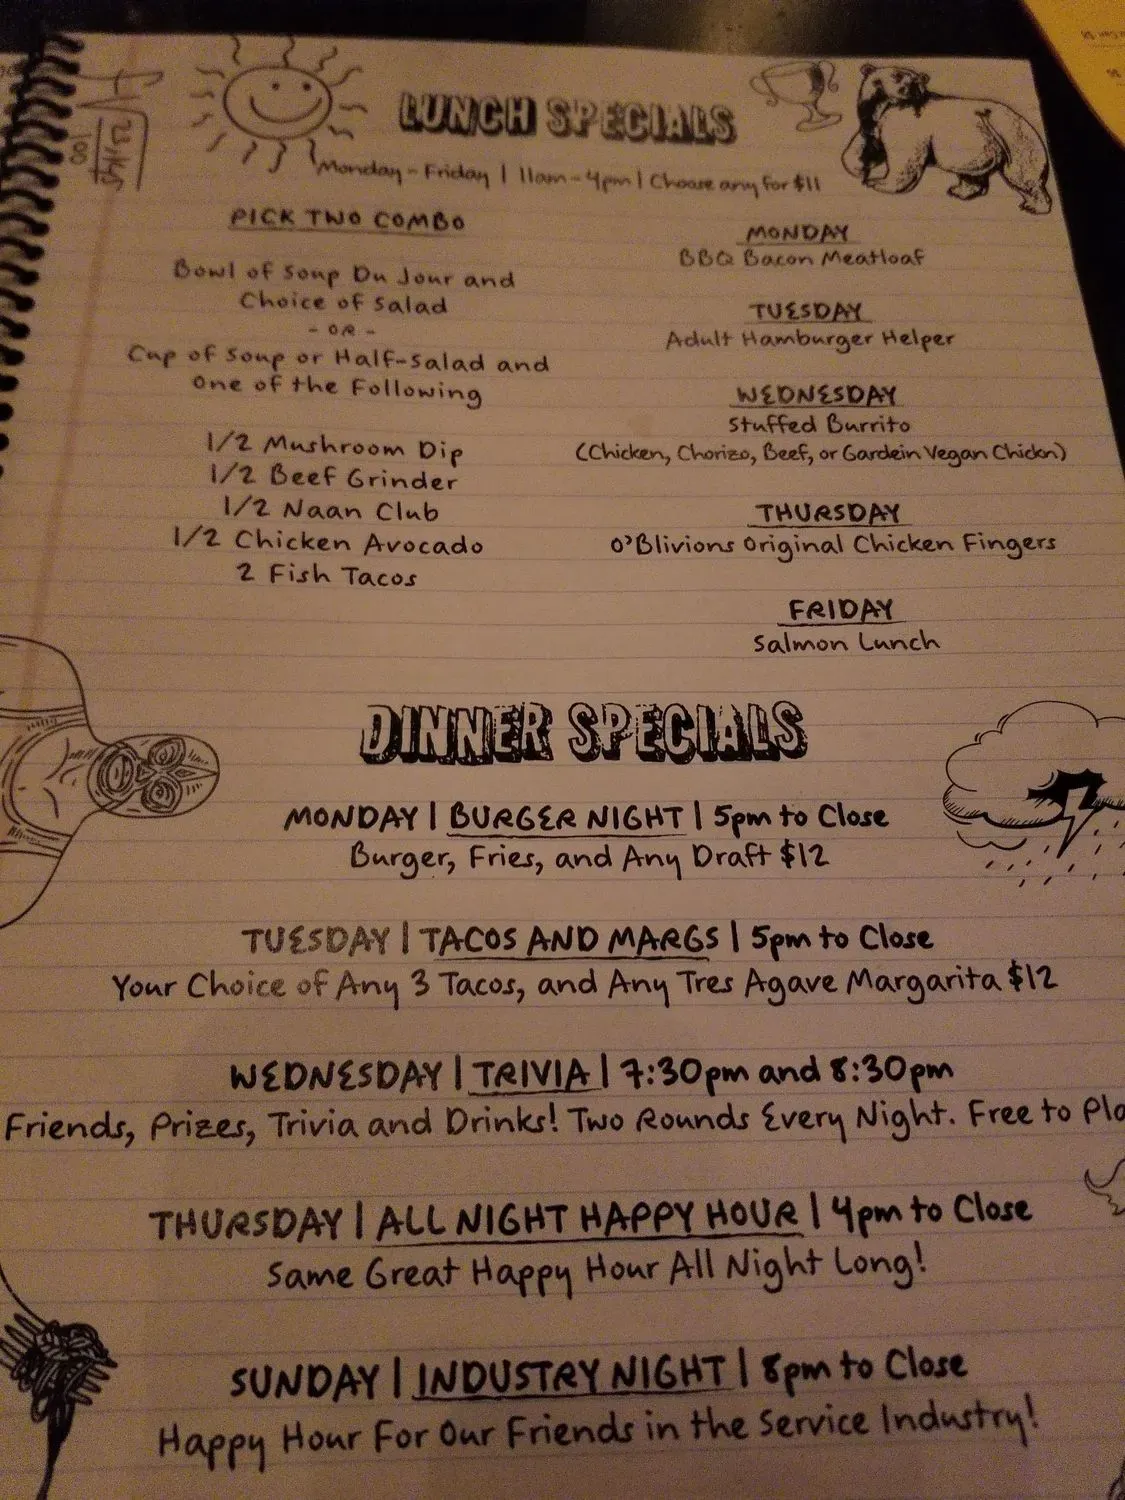 LUNCH SPECIALS
Monday - Friday | 11am - 4pm | Choose any for $11
PICK TWO COMBO
Bowl of Soup Du Jour and
Choice of Salad
- OR -
Cup of Soup or Half-Salad and
One of the Following
1/2 Mushroom Dip
1/2 Beef Grinder
1/2 Naan Club
1/2 Chicken Avocado
2 Fish Tacos
MONDAY
BBQ Bacon Meatloaf
TUESDAY
Adult Hamburger Helper
WEDNESDAY
Stuffed Burrito
(Chicken, Chorizo, Beef, or Gardein Vegan Chickn)
THURSDAY
O'Blivions Original Chicken Fingers
FRIDAY
Salmon Lunch
DINNER SPECIALS
MONDAY | BURGER NIGHT | 5pm to Close
Burger, Fries, and Any Draft $12
TUESDAY | TACOS AND MARGS | 5pm to Close
Your Choice of Any 3 Tacos, and Any Tres Agave Margarita $12
WEDNESDAY | TRIVIA | 7:30pm and 8:30pm
Friends, Prizes, Trivia and Drinks! Two Rounds Every Night. Free to Pla
THURSDAY | ALL NIGHT HAPPY HOUR | 4pm to Close
Same Great Happy Hour All Night Long!
SUNDAY | INDUSTRY NIGHT | 8pm to Close
Happy Hour For Our Friends in the Service Industry!